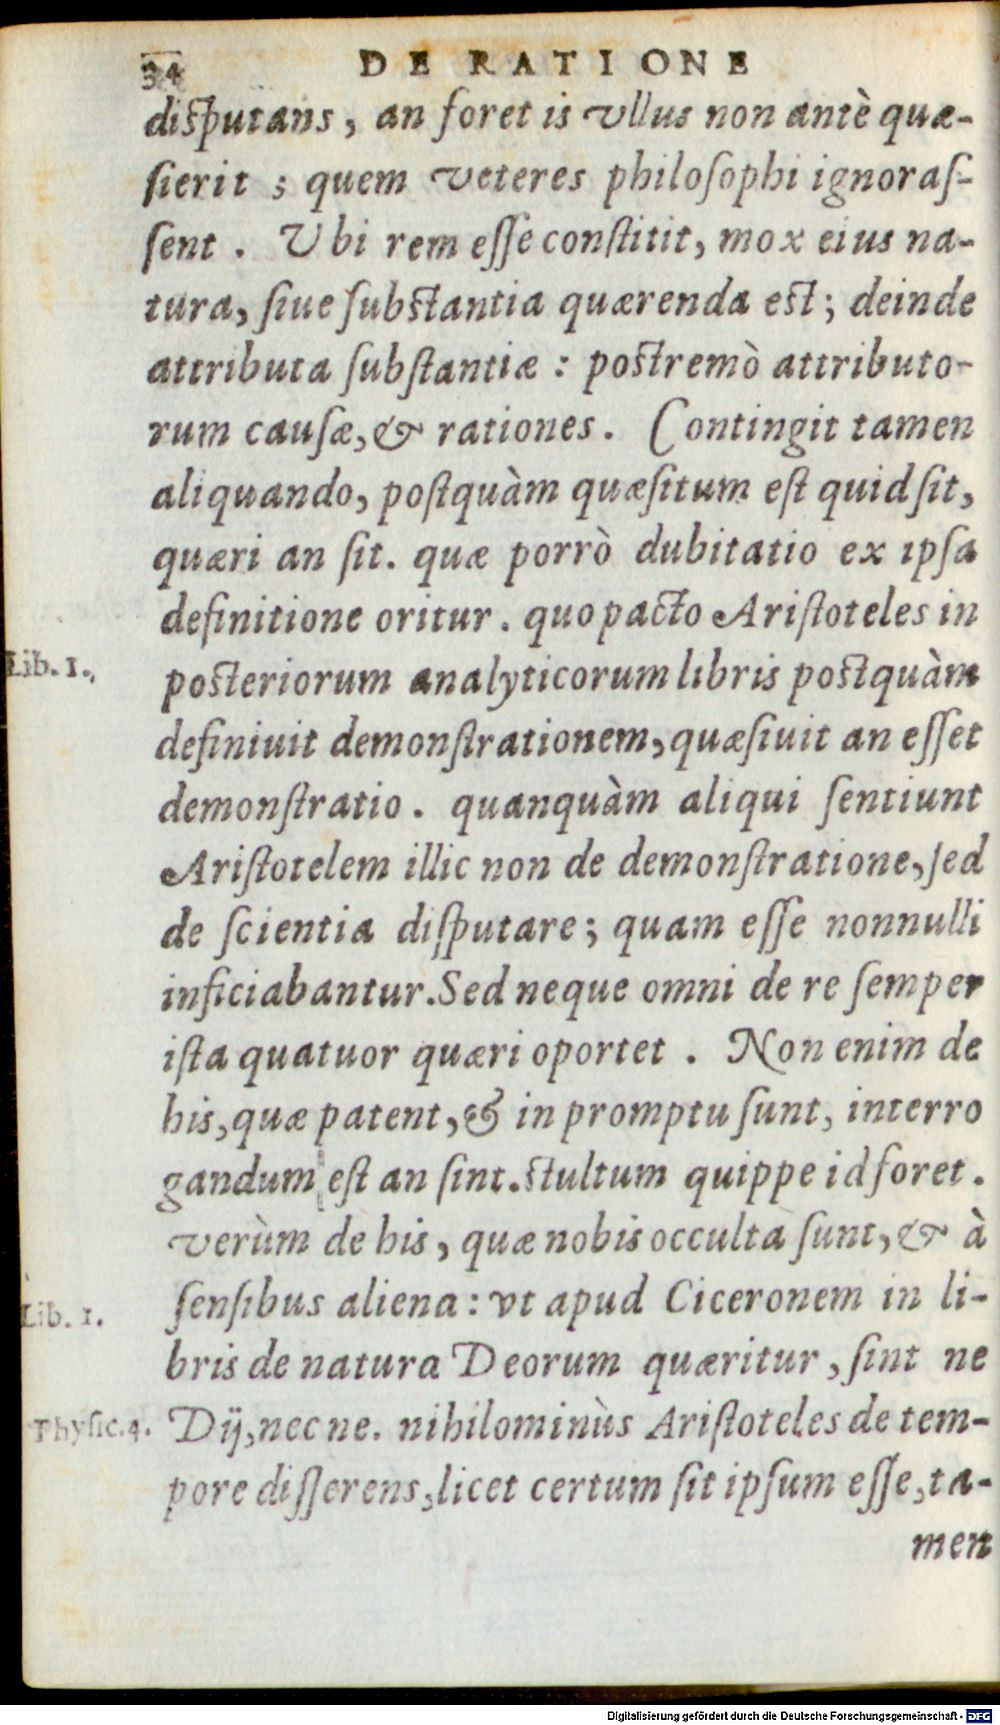 34 DE RATIONE
disputans, an foret is vllus non antè quæ-
sierit; quem veteres philosophi ignoras-
sent. Vbi rem esse constitit, mox eius na-
tura, siue substantia quærenda est; deinde
attributa substantiæ: postremò attributo-
rum causæ, & rationes. Contingit tamen
aliquando, postquàm quæsitum est quid sit,
quæri an sit. quæ porrò dubitatio ex ipsa
definitione oritur. quo pacto Aristoteles in
Lib. 1.
posteriorum analyticorum libris postquàm
definiuit demonstrationem, quæsiuit an esset
demonstratio. quanquàm aliqui sentiunt
Aristotelem illic non de demonstratione, sed
de scientia disputare; quam esse nonnulli
inficiabantur. Sed neque omni de re semper
ista quatuor quæri oportet. Non enim de
his, quæ patent, & in promptu sunt, interro
gandum est an sint. stultum quippe id foret.
verùm de his, quæ nobis occulta sunt, & à
Lib. 1.
sensibus aliena: vt apud Ciceronem in li-
bris de natura Deorum quæritur, sint ne
Physic. 4.
Dij, nec ne. nihilominùs Aristoteles de tem-
pore disserens, licet certum sit ipsum esse, ta-
men
Digitalisierung gefördert durch die Deutsche Forschungsgemeinschaft - DFG